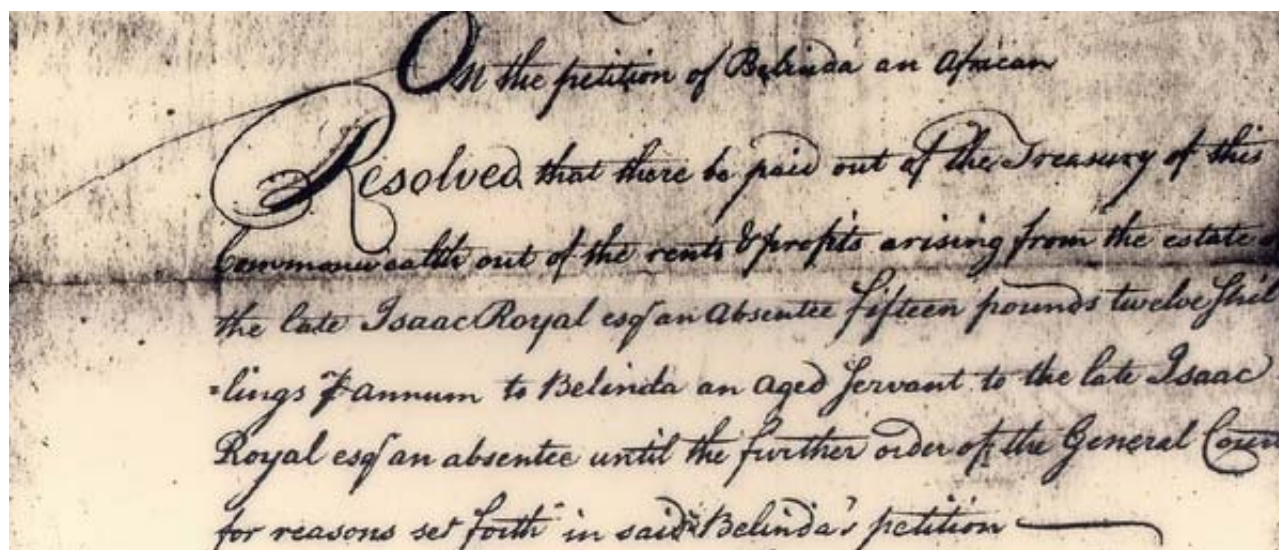 On the petition of Belinda an African
Resolved that there be paid out of the Treasury of this
Commonwealth out of the rents & profits arising from the estate of
the late Isaac Royal esqr an Absentee fifteen pounds twelve shil
=lings ⅌ annum to Belinda an aged servant to the late Isaac
Royal esqr an absentee until the further order of the General Cour
for reasons set forth in said Belinda's petition